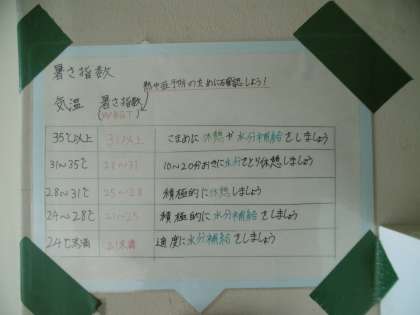 暑さ指数
熱中症予防のために確認しよう!
気温 暑さ指数 (WBGT)
35℃以上 31以上 こまめに休憩や水分補給をしましょう
31〜35℃ 28〜31 10〜20分おきに水分をとり休憩しましょう
28〜31℃ 25〜28 積極的に休憩しましょう
24〜28℃ 21〜25 積極的に水分補給をしましょう
24℃未満 21未満 適度に水分補給をしましょう